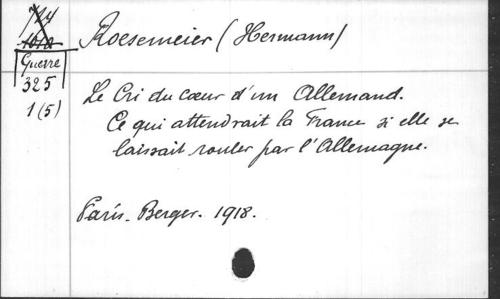 724
1012
Guerre
325
1(5)
Roesemeier (Hermann)
Le Cri du cœur d'un Allemand.
Ce qui attendrait la France si elle se
laissait rouler par l'Allemagne.
Paris. Berger. 1918.